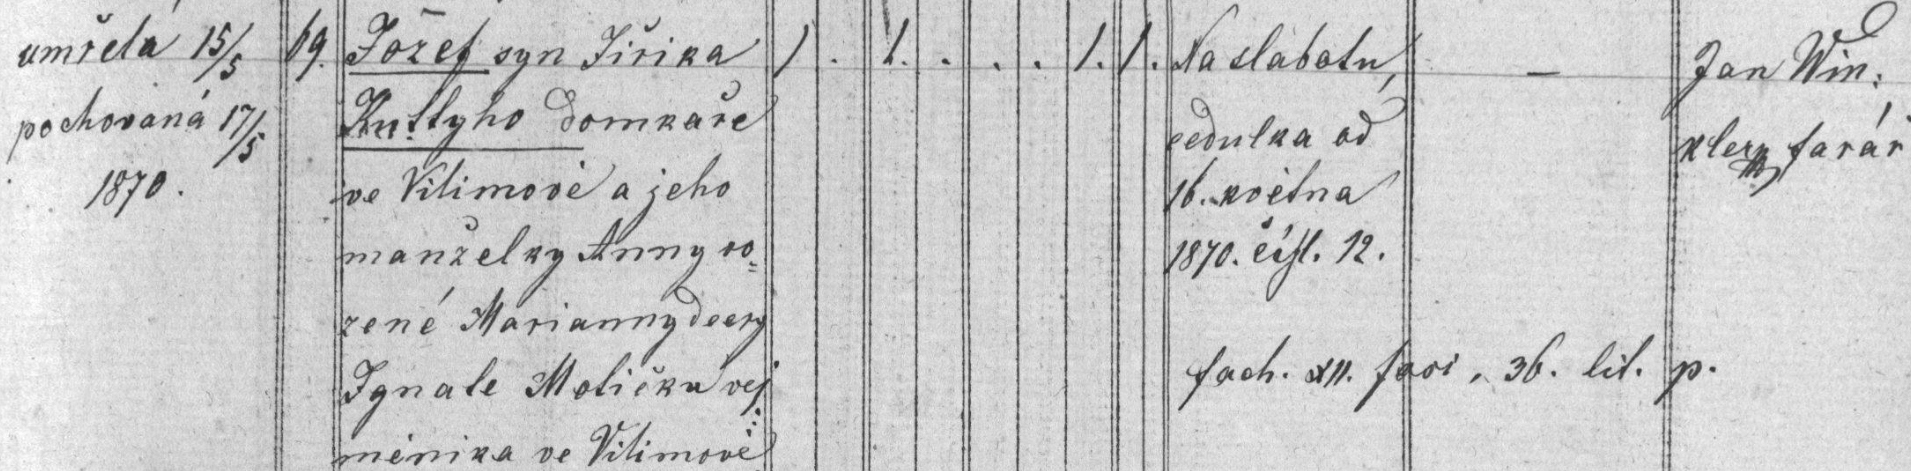 umřela 15/5
pochovaná 17/5
1870.
69.
Jozef syn Jiříka
Kuttyho domkaře
ve Vilimově a jeho
manželky Anny ro=
zené Marianny dcery
Ignale Moličku vej
měnika ve Vilimově
1 . 1. . . . 1. 1.
Na slabotu,
cedulka od
16. května
1870. čisl. 12.
fach. XII. fasi. 36. lit. p.
—
Jan Win:
kler farář